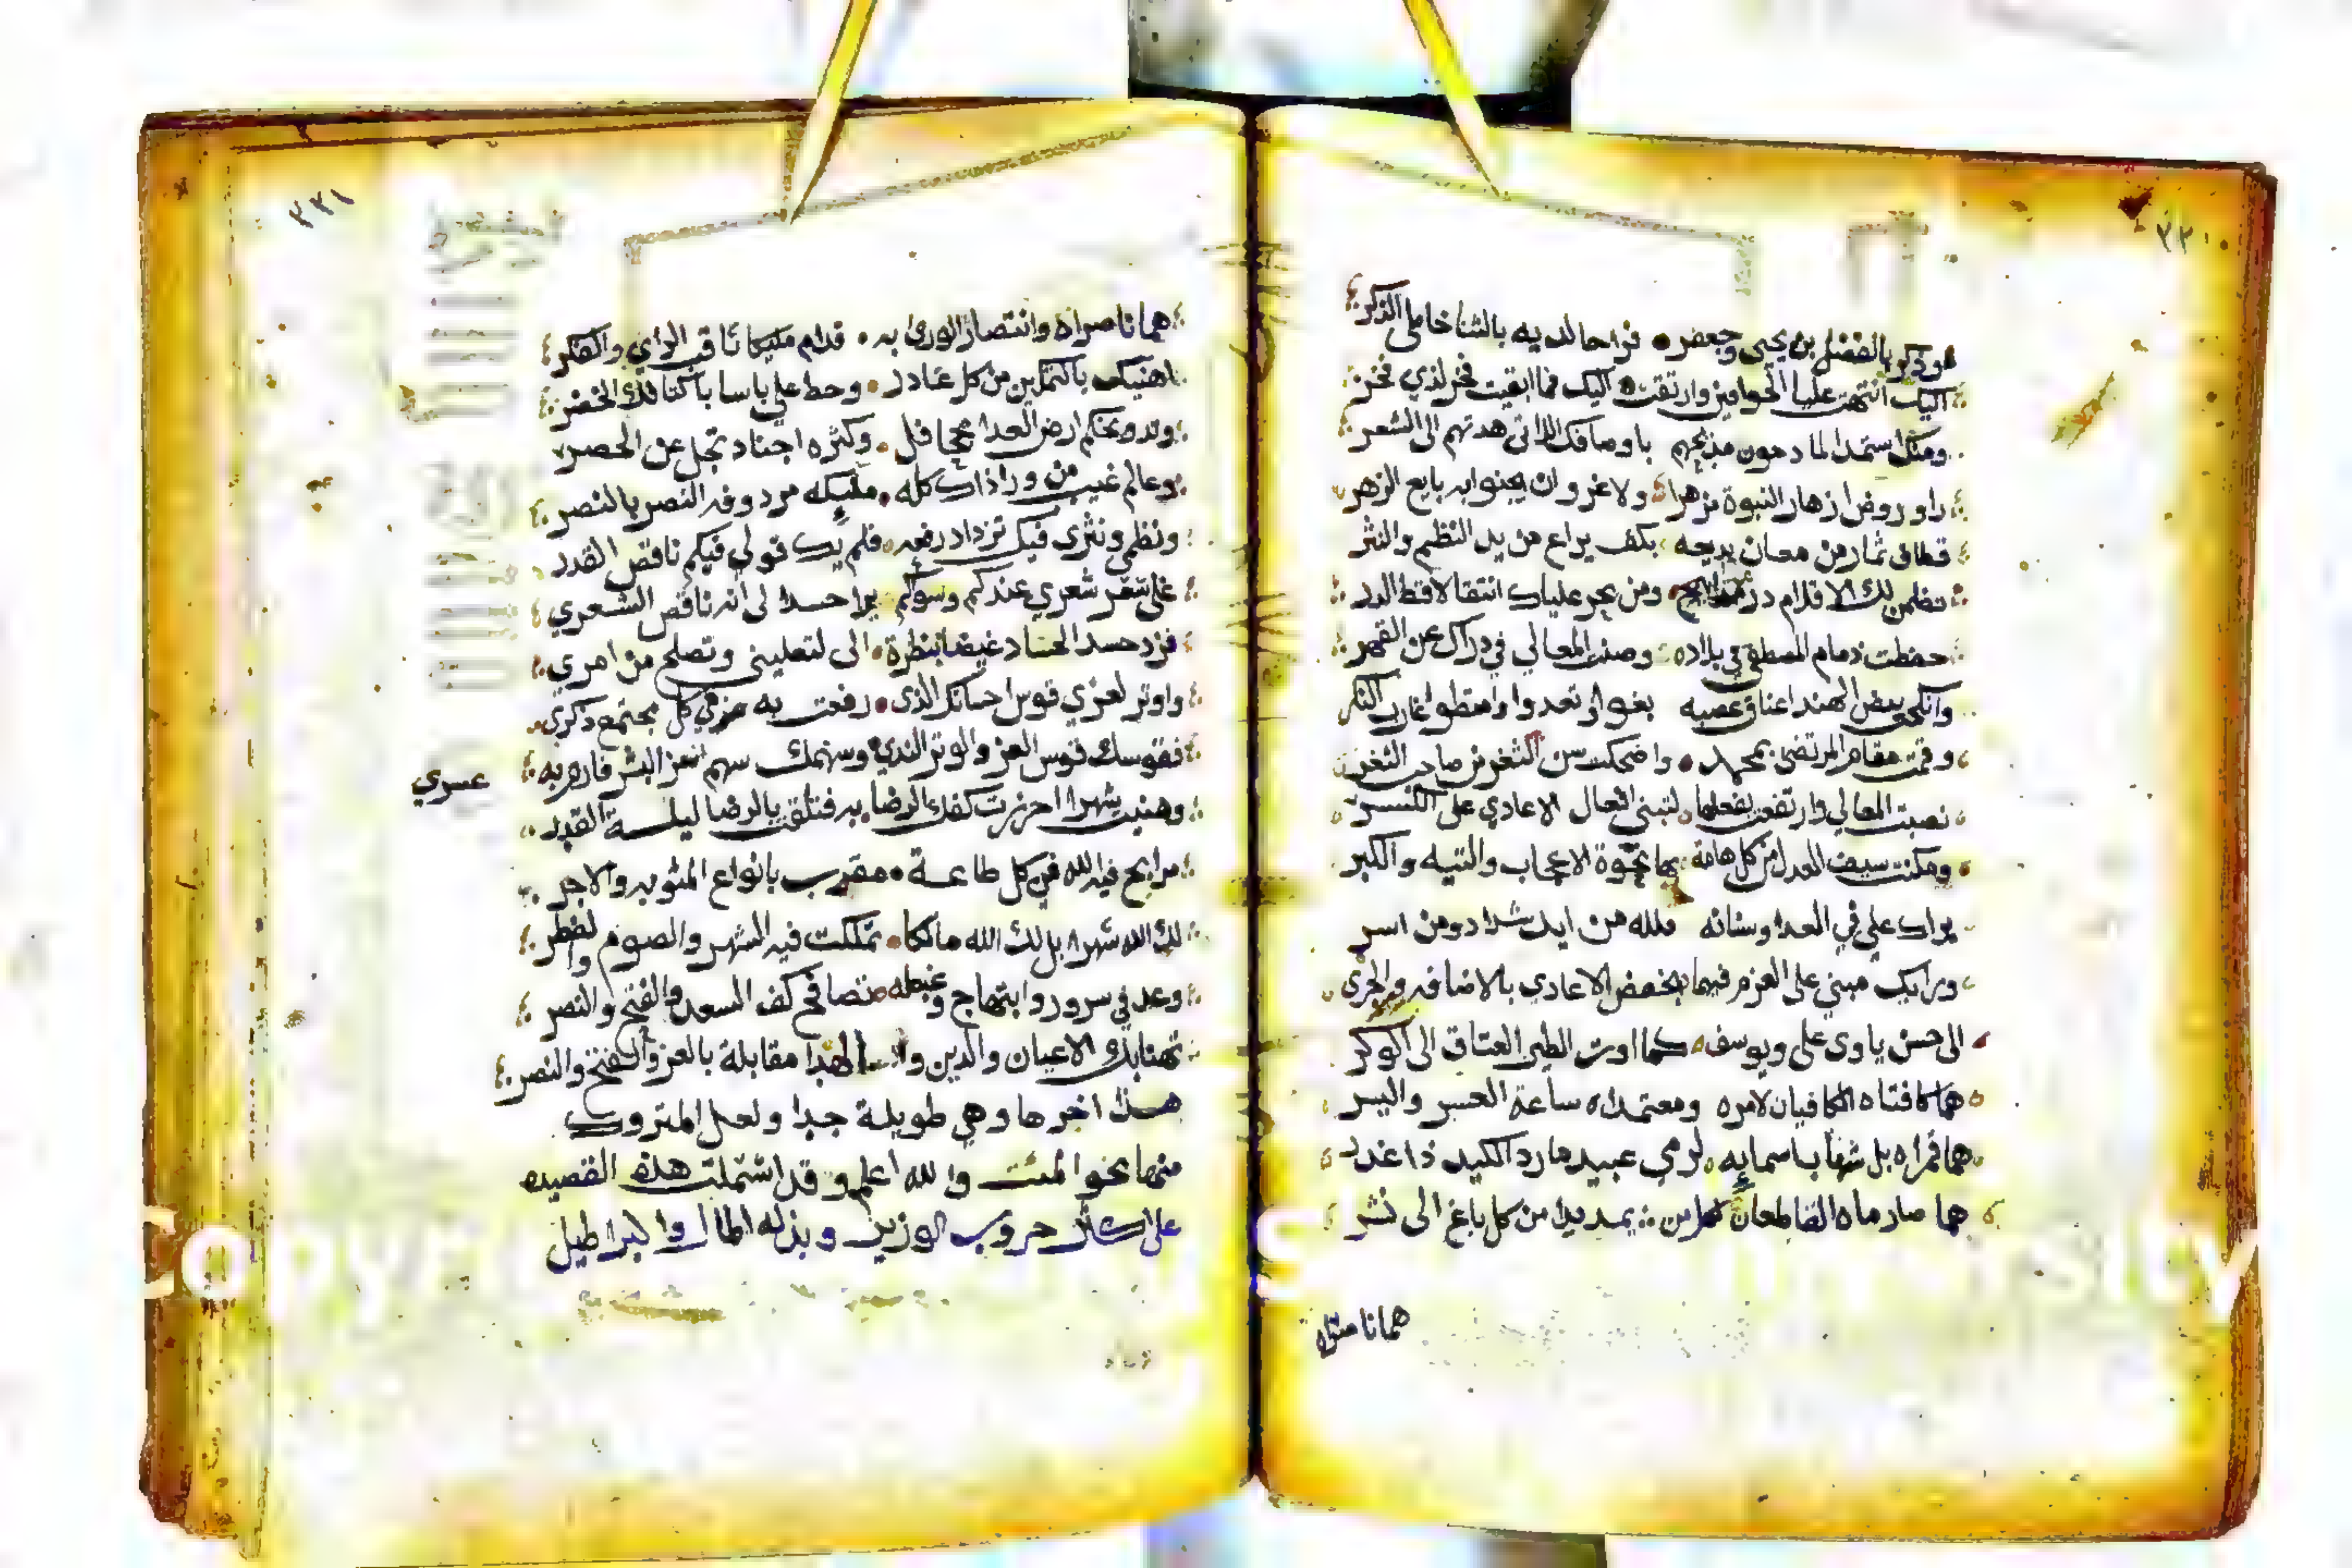 ٣٣٠
هو ذكر بالفضل بن يحيى وجعفر فراحا لديه بالثنا خاملي الذكر
اليك انتهت عليا الخوافين وارتقت اليك فما ابقيت فخر لذي فخر
ومنك استمد المادحون مذيحهم باوصافك اللاتي هدتهم الى الشعر
راو روض ازهار النبوة مزهرا ولا غروان يجنوابه يانع الزهر
قطاف ثمار من معان بديعه بكف يراع من يد النظم والنثر
نظمن لك الاقلام در ومن بحر علياك انتقا لاقط الدر
حفظت ذمام المصطفى في بلاده وصنت المعالي في ذراك عن القهر
وانكحت بيض الهند اعناق عصبه بغوا وتعدوا وامتطوا غارب النكر
وقمت مقام المرتضى بمحمد واضحكت سن الثغر من صاحب الثغر
نصبت المعالي وارتفعت بفعلها لتبني افعال الاعادي على الكسر
ومكنت سيف العدل من كل هامة بها نخوة الاعجاب والتيه والكبر
يراك علي في العدا وسنانه فلله من ايد شداد ومن اسر
ورايك مبني على العزم فيهما بخفض الاعادي بالاضافه والجر
الى حسن ياوى علي ويوسف كما اوت الطير العتاق الى الوكر
هما كافتاه الكافيان لامره ومعتمداه ساعة العسر واليسر
هما قمراه بل شهابا سمايه لرمي عبيد مارد الكيد ذا غدر
هما صارماه القاطعان لمن يمد يدا من كل باغ الى نشر
همانا صراه
٣٣١
همانا صراه وانتصار الورى به قدام مليكا ثاقب الراي والفكر
اهنيك بالتمكين من كل غادر وحط علي باسا باكنافك الخضر
وتدويخكم ارض العدا بجحافل وكثره اجناد تجل عن الحصر
وعالم غيب من وراذاك كله مليكه مردوفه النصر بالنصر
ونظمي ونثري فيك تزداد رفعه فلم يك قولي فيكم ناقص القدر
غلى سعر شعري عندكم وسوكم يرا حسدا لي انه ناقص الشعري
فزد حسد الحساد غيضا بنظرة الى لتعليني وتصلح من امري
واوتر لعزي قوس احسانك الذى رفعت به في كل مجتمع ذكري
فقوسك قوس العز والوتر الندي وسهمك سهم اليسر فارم به
عسري
وهنيت شهرا احرزت كفك الرضا به فتلق بالرضا ليلة القدر
مرابح فيه لله في كل طاعة مقرب بانواع المثوبه والاجر
لك الله شهرا بل لك الله مالكا تملكت فيه الشهر والصوم والفطر
وعد في سرور وابتهاج وغبطه تصافح كف السعد والفتح والنصر
تهنابك الاعيان والدين والهدا مقابلة بالعز والفتح والنصر
هذا اخرها وهي طويلة جدا ولعل المتروك
منها نحو المئت والله اعلم وقد اشتملت هذه القصيده
على اكثر حروب الوزير وبذله المال والبراطيل